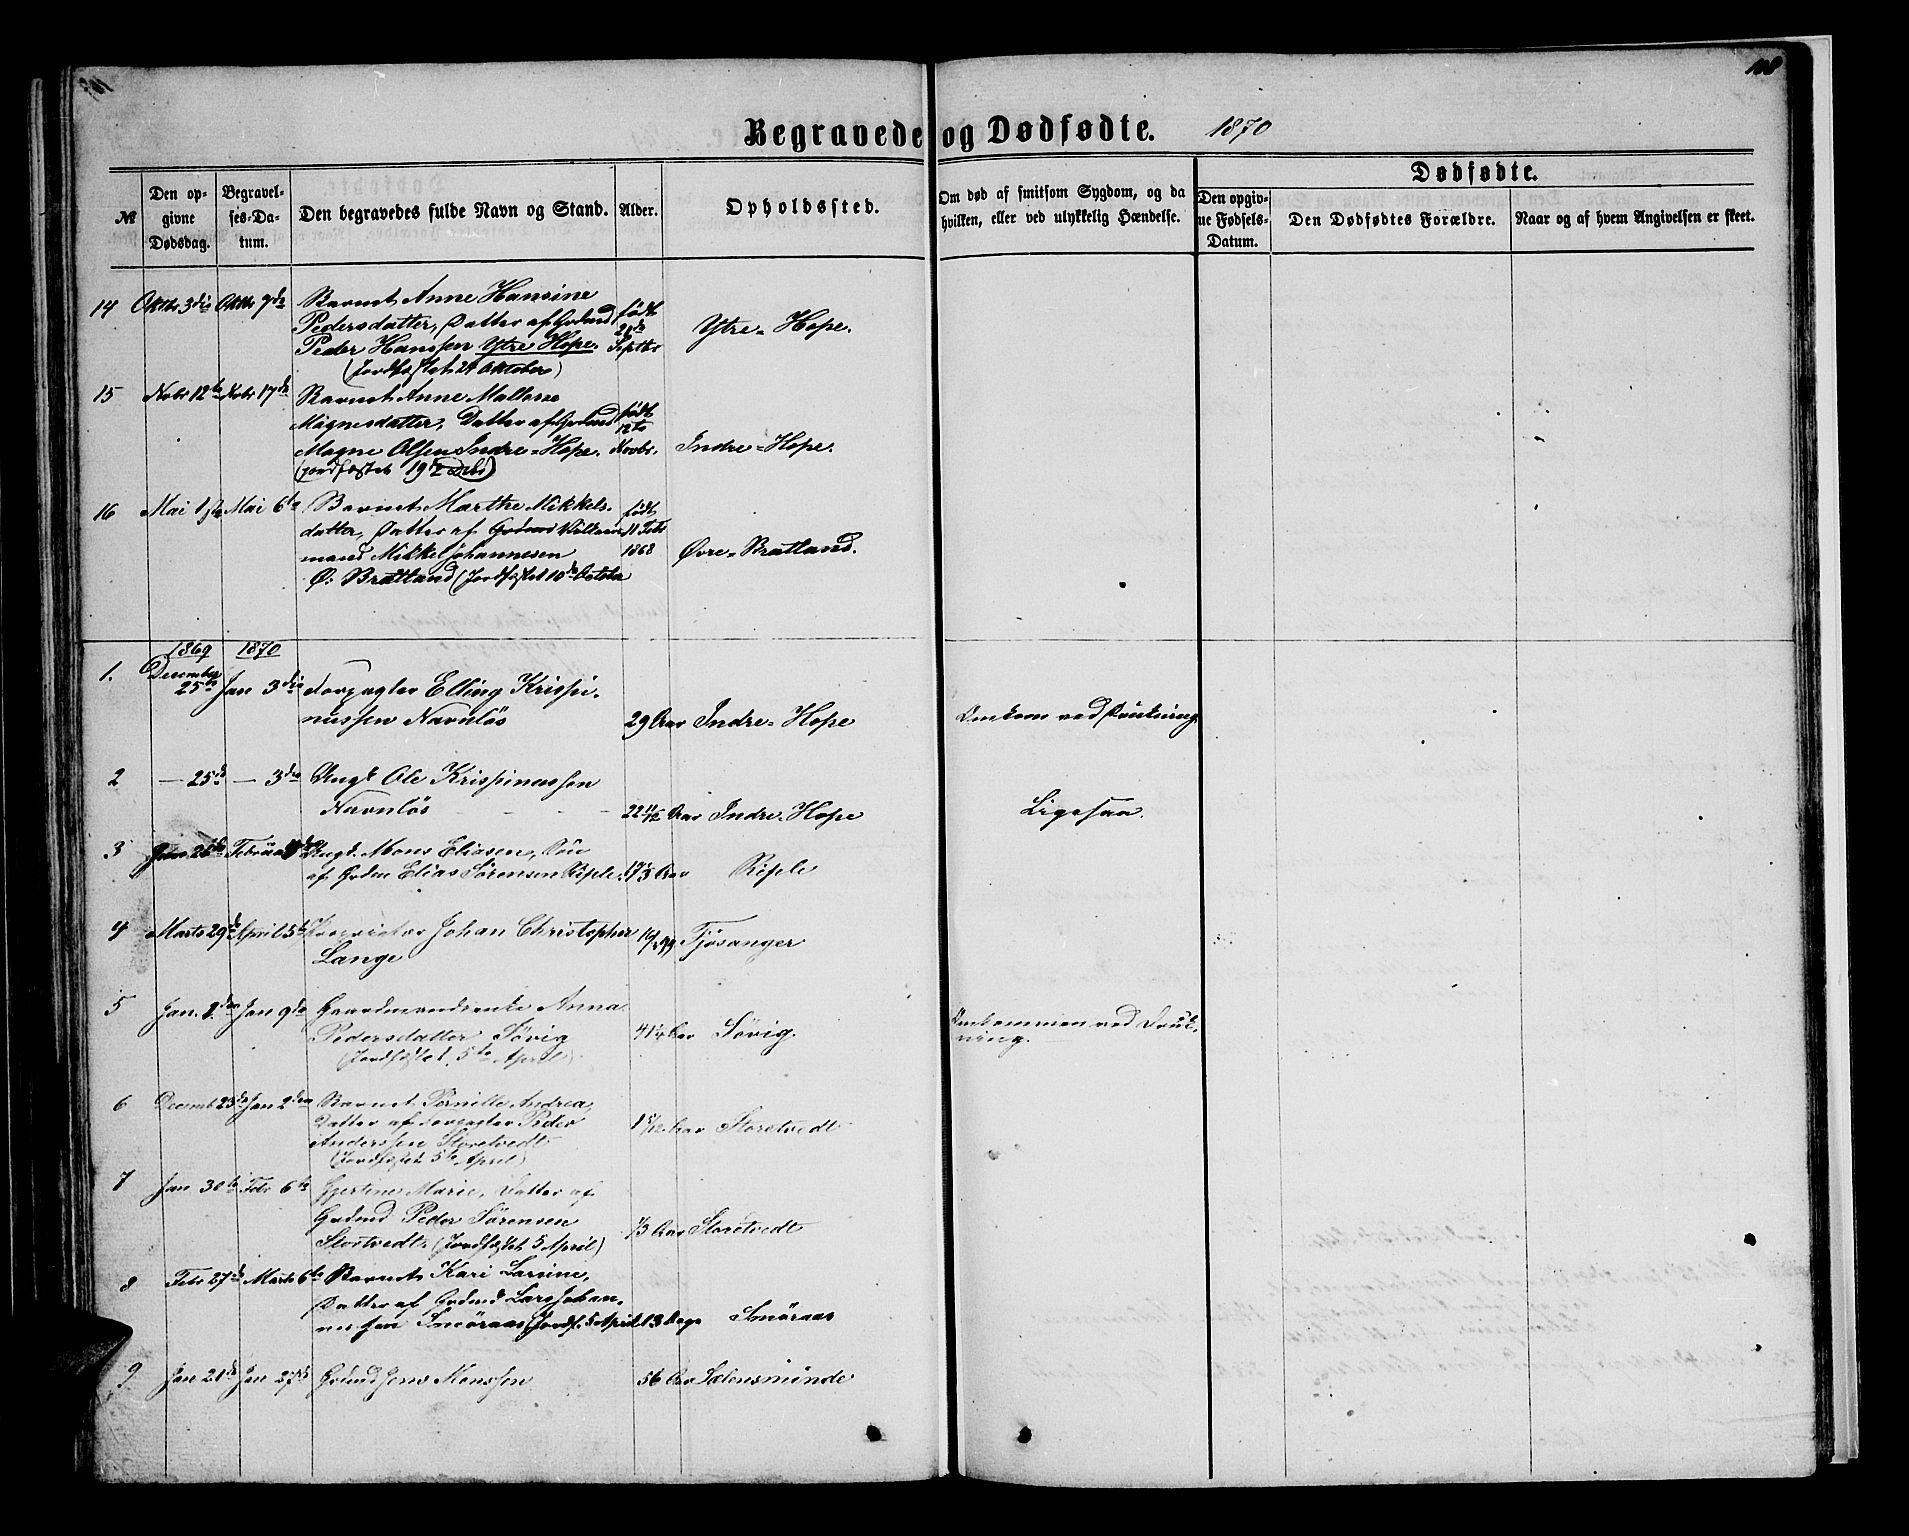 108
Begravede og Dødfødte. 1870
Dødfødte.
№
Den op-
givne
Dødsdag.
Begravel-
ses-Da-
tum.
Den begravedes fulde Navn og Stand.
Alder.
Opholdssted.
Om død af smitsom Sygdom, og da
hvilken, eller ved ulykkelig Hændelse.
Den opgiv-
ne Fødsels-
Datum.
Den Dødfødtes Forældre.
Naar og af hvem Angivelsen er skeet.
14 Oktbr 3die Oktbr 9de Barnet Anne Hansine
Pedersdatter, Datter af Grdmd født
Peder Hanssen Ytre Hope. Septbr Ytre-Hope.
(Jordfæstet 24 Oktober)
15 Nobr 12te Nobr 17de Barnet Anne
Magnesdatter, Datter af Grdmd født 12te
Magne Olsen Indre-Hope. Novbr. Indre-Hope.
(jordfæstet 19
16 Mai 1ste Mai 6te Barnet Marthe Mikkels-
datter, Datter af født 11 Febr
mand Mikkel Johannesen 1868 Øvre-Bratland.
Ø: Bratland (Jordfæstet 10de October
1869 1870
1. December
25de Jan 3die Forpagter Elling Krispi-
nussen Navnløs 29 Aar Indre-Hope Omkom ved Drukning.
2 — 25de — 3die Ungk Ole Krispinussen
Navnløs 22 11/12 Aar Indre-Hope Ligesaa.
3 Jan. 26de Februar Ungk. Mons Eliasen, Søn
af Grdm Elias Sørensen Riple. Aar Riple
4 Marts 29de April 5te Johan Christopher
Lange Fjøsanger
5 Jan. 2den Jan 9de Gaardmandsenke Anna
Pedersdatter Søvig 41 1/4 Aar Søvig. Omkommen ved Druk-
(Jordfæstet 5te April) ning.
6 Decemb 25de Jan 2den Barnet Pernille Andrea,
Datter af Forpagter Peder
Anderssen Storetvedt 5/12 Aar Storetvedt
(Jordfæstet 5te April)
7 Jan 30te Febr 6te Gjertine Marie, Datter af
Grdmd Peder Sørensen
Stortvedt. (Jordfæstet 5 April) 1/3 Aar Storetvedt
8 Febr 27de Marts 6te Barnet Kari Larsine,
Datter af Grdmd Lars Johan-
nessen Smøraas (Jordf. 5 April 13 Dage Smøraas
9 Jan 21de Jan 27de Grdmd Jens Monssen 56 Aar Sælensminde